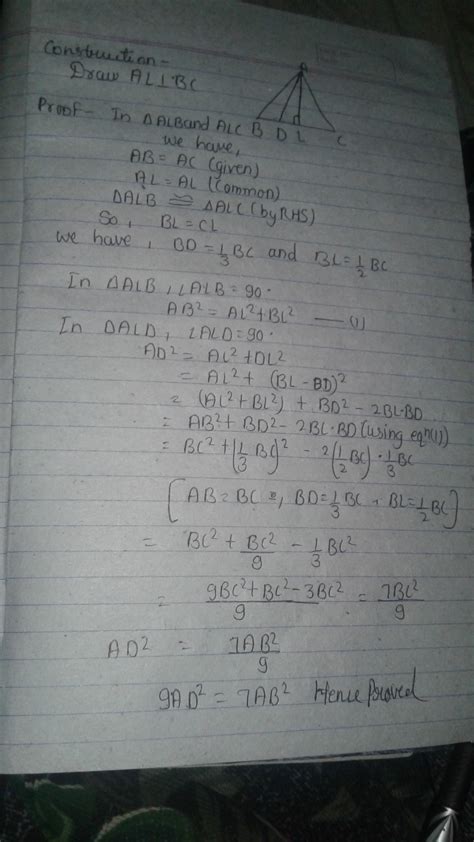 Construction -
Draw AL⊥BC
A
B D L C
Proof - In ΔALB and ALC
we have,
AB = AC (given)
AL = AL (common)
ΔALB ≅ ΔALC (by RHS)
So, BL = CL
we have, BD = 1/3 BC and BL = 1/2 BC
In ΔALB, ∠ALB = 90.
AB² = AL² + BL² — (1)
In ΔALD, ∠ALD = 90.
AD² = AL² + DL²
= AL² + (BL - BD)²
= (AL² + BL²) + BD² - 2BL·BD
= AB² + BD² - 2BL·BD (using eqn(1))
= BC² + (1/3 BC)² - 2(1/2 BC)·1/3 BC
[AB = BC, BD = 1/3 BC, BL = 1/2 BC]
= BC² + BC²/9 - 1/3 BC²
= 9BC² + BC² - 3BC²/9 = 7BC²/9
AD² = 7AB²/9
9AD² = 7AB² Hence Proved